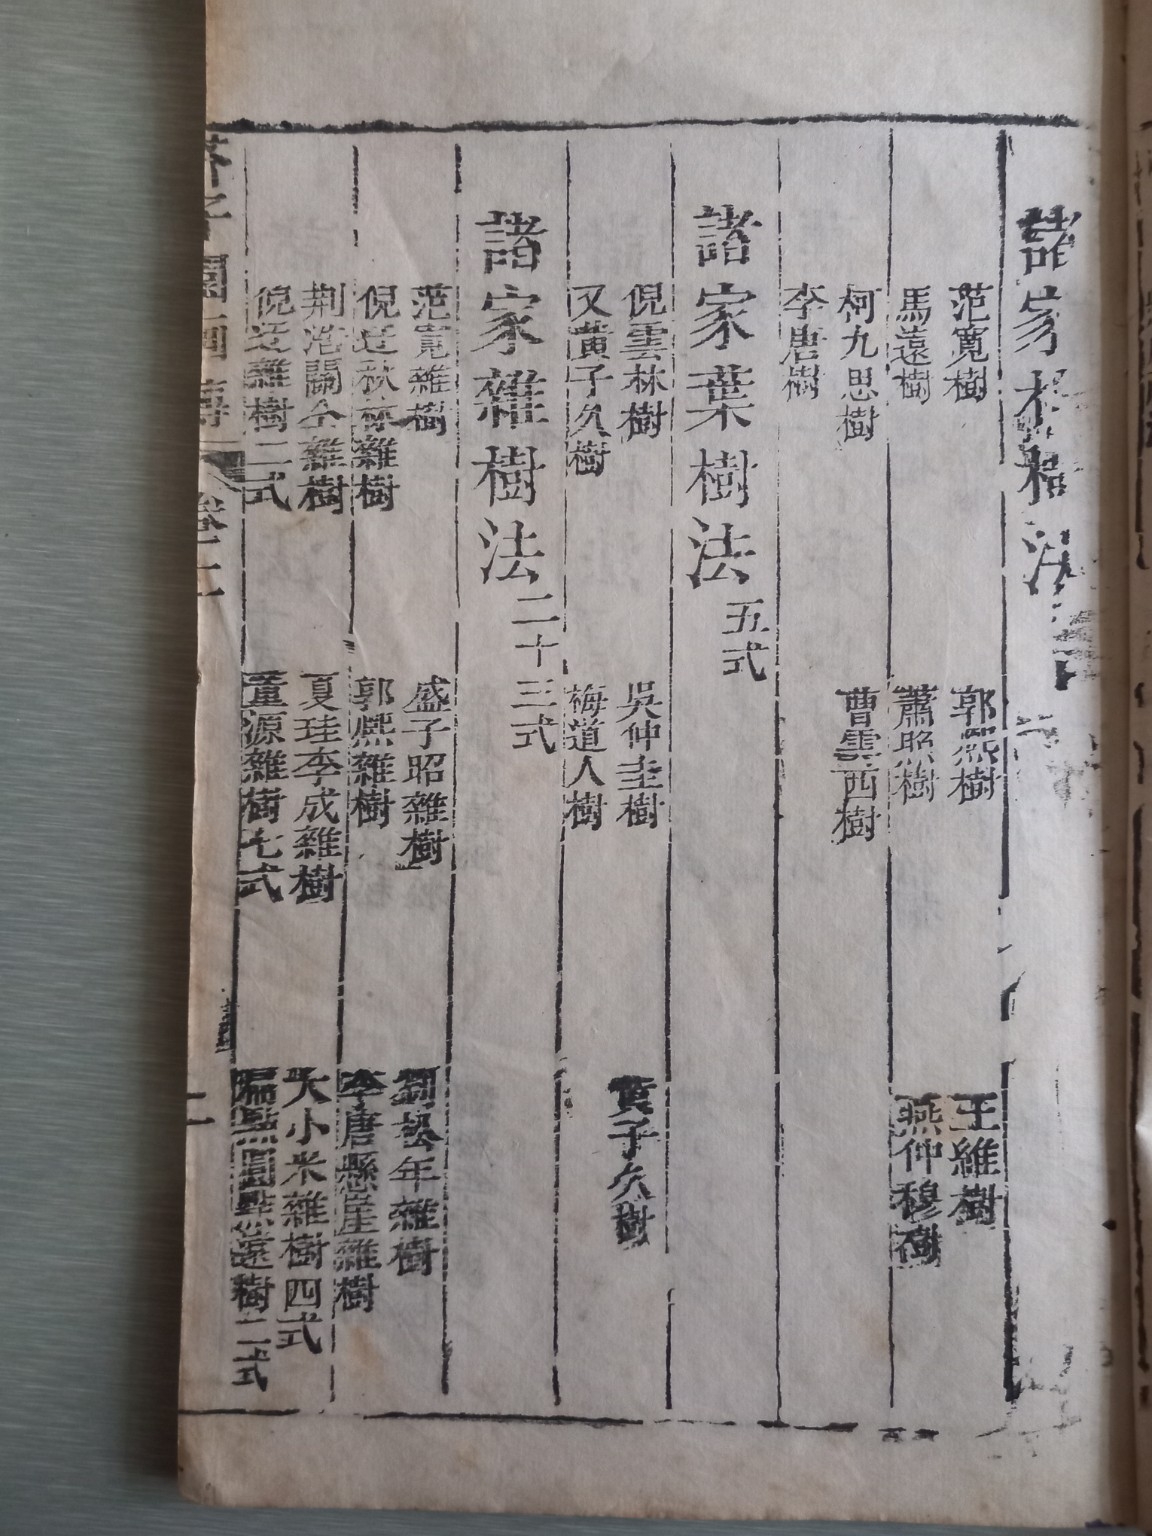 諸家枯樹法
范寬樹 郭熙樹 王維樹
馬遠樹 蕭照樹 燕仲穆樹
柯九思樹 曹雲西樹
李唐樹
諸家葉樹法 五式
倪雲林樹 吳仲圭樹 黃子久樹
又黃子久樹 梅道人樹
諸家雜樹法 二十三式
范寬雜樹 盛子昭雜樹 劉松年雜樹
倪迂秋林雜樹 郭熙雜樹 李唐懸崖雜樹
荆浩關仝雜樹 夏珪李成雜樹 大小米雜樹四式
倪迂雜樹二式 董源雜樹七式 扁點圓點遠樹二式
芥子園畫傳 卷二 二